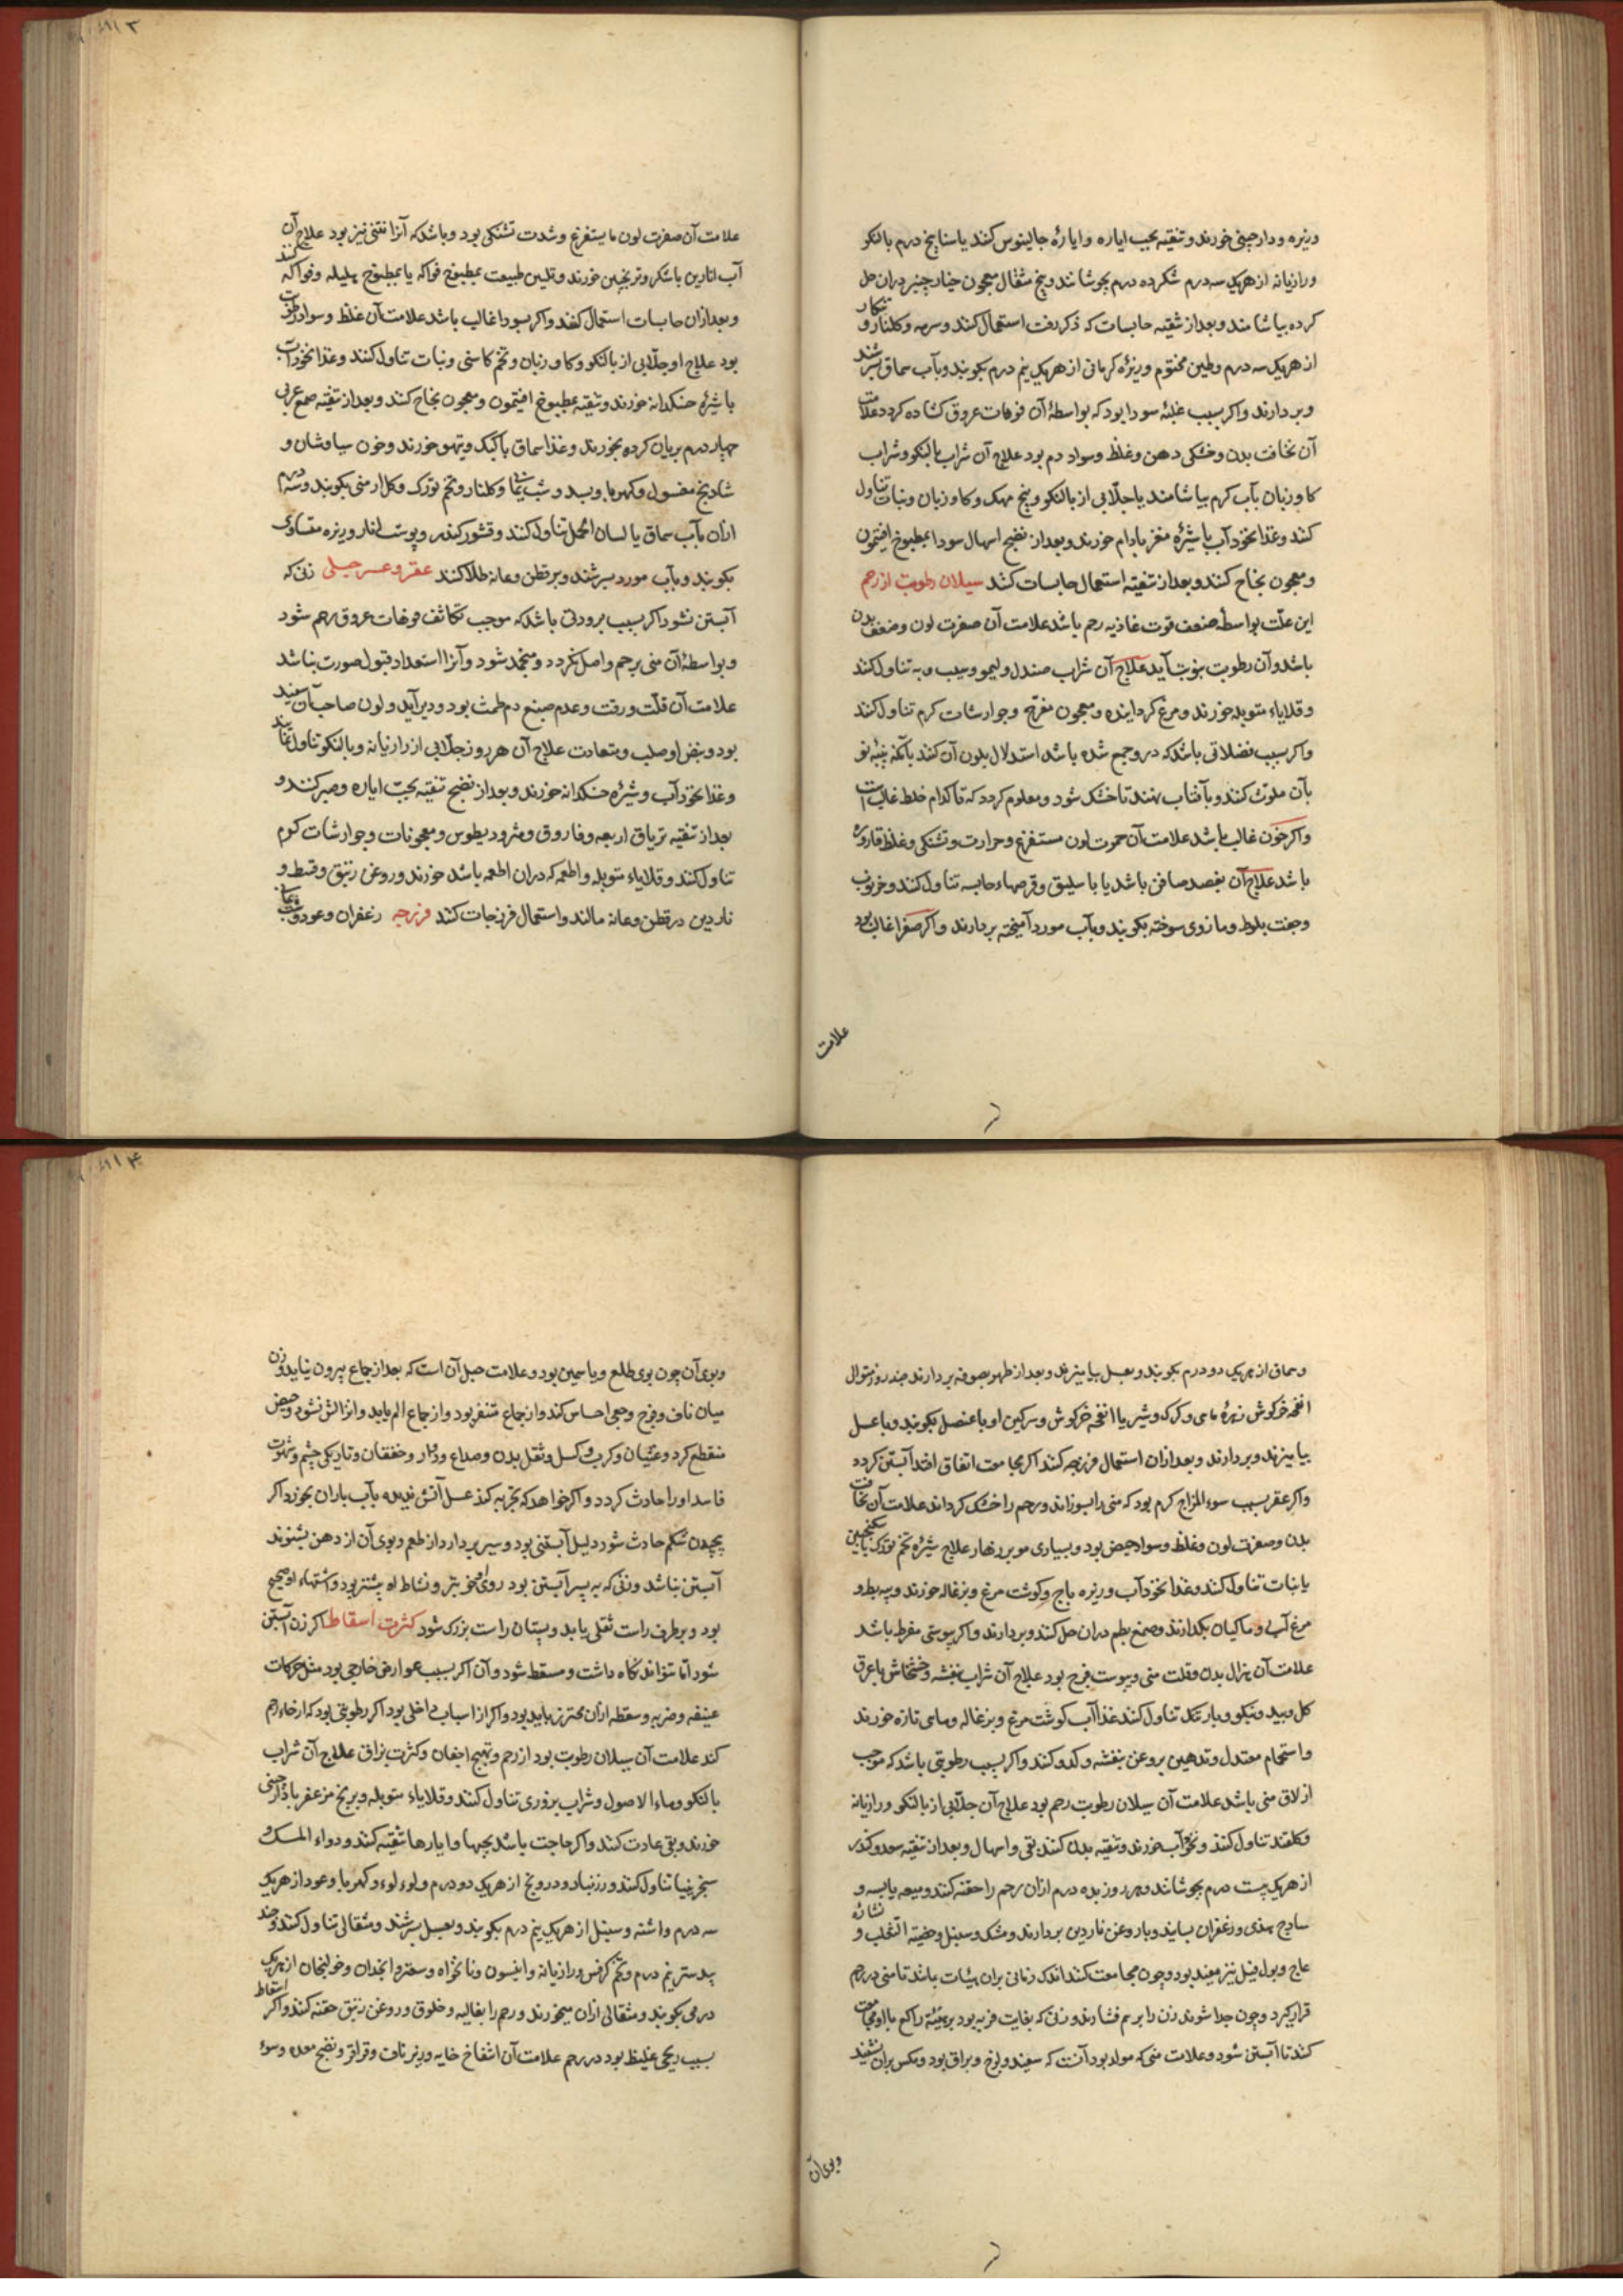 وزیره و دارچینی خورند و تنقیه بحب ایاره و ایارهٔ جالینوس کنند یا سنا پنج درم بالنکو
و رازیانه از هریک سه درم شکر ده درم بجوشانند و پنج مثقال معجون خیارچنبر دران حل
کرده بیاشامند و بعد از تنقیه حابسات که ذکر رفت استعمال کنند و سرمه و کلنار و
از هریک سه درم و طین مختوم و زیرهٔ کرمانی از هریک نیم درم بکوبند و بآب سماق بسرشند
و بردارند و اکر بسبب غلبهٔ سودا بود که بواسطهٔ آن فوهات عروق کشاده کردد علامت
آن نحافت بدن و خشکی دهن و غلظ و سواد دم بود علاج آن شراب بالنکو و شراب
کاوزبان بآب کرم بیاشامند یا جلّابی از بالنکو و بیخ مهک و کاوزبان و نبات تناول
کنند و غذا نخودآب با شیرهٔ مغز بادام خورند و بعد از نضج اسهال سودا بمطبوخ افتیمون
و معجون نجاح کنند و بعد از تنقیه استعمال حابسات کنند سیلان رطوبت از رحم
این علّت بواسطهٔ ضعف قوت غاذیه رحم باشد علامت آن صفرت لون و ضعف بدن
باشد و آن رطوبت بنوبت آید علاج آن شراب صندل و لیمو و سیب و به تناول کنند
و قلایاء متوبله خورند و مرغ کردانیده و معجون مفرّح و جوارشات کرم تناول کنند
و اکر بسبب فضلاتی باشد که درو جمع شده باشد استدلال بلون آن کنند بآنکه پنبهٔ نو
بآن ملوّث کنند و بآفتاب نهند تا خشک شود و معلوم کردد که تا کدام خلط غالب است
و اکر خون غالب باشد علامت آن حمرت لون مستفرغ و حرارت و تشنکی و غلظ قاروره
باشد علاج آن بفصد صافن باشد یا باسلیق و قرصهاء حابسه تناول کنند و خرنوب
و جفت بلوط و مازوی سوخته بکوبند و بآب مورد آمیخته بردارند و اکر صفرا غالب بود
علامت
علامت آن صفرت لون ما یستفرغ و شدت تشنکی بود و باشد که آنرا نتنی نیز بود علاج آن
آب انارین با شکر و ترنجبین خورند و تلیین طبیعت بمطبوخ فواکه یا بمطبوخ هلیله و فواکه کنند
و بعد ازان حابسات استعمال کنند و اکر سودا غالب باشد علامت آن غلظ و سواد رطوبت
بود علاج او جلّابی از بالنکو و کاوزبان و تخم کاسنی و نبات تناول کنند و غذا نخودآب
با شیرهٔ خسکدانه خورند و تنقیه بمطبوخ افتیمون و معجون نجاح کنند و بعد از تنقیه صمغ عربی
چهار درم بریان کرده بخورند و غذا سماق با کبک و تیهو خورند و خون سیاوشان و
شادنج مغسول و کهربا و بسد و شب یمانی و کلنار و تخم تورک و کل ارمنی بکوبند و سه درم
ازان بآب سماق یا لسان الحمل تناول کنند و قشور کندر و پوست انار و زیره متساوی
بکوبند و بآب مورد بسرشند و بر قطن و عانه طلا کنند عقر و عسر حبلی زنی که
آبستن نشود اکر بسبب برودتی باشد که موجب تکاثف فوهات عروق رحم شود
و بواسطهٔ آن منی برحم واصل نکردد و منجمد شود و آنرا استعداد قبول صورت نباشد
علامت آن قلّت و رقت و عدم صبغ دم طمث بود و دیر آید و لون صاحب آن سفید
بود و نبض او صلب و متفاوت علاج آن هر روز جلّابی از رازیانه و بالنکو تناول نمایند
و غذا نخودآب و شیرهٔ خسکدانه خورند و بعد از نضج تنقیه بحبّ ایاره و صبر کنند و
بعد از تنقیه تریاق اربعه و فاروق و مثرودیطوس و معجونات و جوارشات کرم
تناول کنند و قلایاء متوبله و اطعمه که دران اطعمه باشد خورند و روغن زنبق و قسط و
ناردین در قطن و عانه مالند و استعمال فرزجات کنند فرزجه زعفران و عود
و سماق از هریک دو درم بکوبند و بعسل بیامیزند و بعد از طهر بصوفه بردارند چند روز متوال
انفحه خرکوش زهرهٔ ماهی و کرک و شیر یا انفحه خرکوش و سرکین او با عنصل بکوبند و با عسل
بیامیزند و بردارند و بعد ازان استعمال فرزجه کنند اکر مجامعت اتفاق افتد آبستن کرده
و اکر عقر بسبب سوء المزاج کرم بود که منی را بسوزاند و رحم را خشک کرداند علامت آن نحافت
بدن و صفرت لون و غلظ و سواد حیض بود و بسیاری مو بر زهار علاج شیرهٔ تخم تورک با سکنجبین
یا نبات تناول کنند و غذا نخودآب و زیره باج و کوشت مرغ و بزغاله خورند و پیه بط و
مرغ آبی و ماکیان بکدازند و صمغ بطم دران حل کنند و بردارند و اکر یبوستی مفرط باشد
علامت آن هزال بدن و قلت منی و یبوست فرج بود علاج آن شراب بنفشه و خشخاش با عرق
کل و بید و نیلوفر و بارتنک تناول کنند غذا آب کوشت مرغ و بزغاله و ماهی تازه خورند
و استحمام معتدل و تدهین بروغن بنفشه و کدو کنند و اکر بسبب رطوبتی باشد که موجب
ازلاق منی باشد علامت آن سیلان رطوبت رحم بود علاج آن جلّابی از بالنکو و رازیانه
و کلقند تناول کنند و نخودآب خورند و تنقیه بدن کنند بقی و اسهال و بعد از تنقیه سعد و کندر
از هریک بیست درم بجوشانند و هر روز بده درم ازان رحم را حقنه کنند و میعه یابسه و
سادج هندی و زعفران بسایند و با روغن ناردین بردارند و مشک و سنبل و خصیة الثعلب و نشارهٔ
عاج و بول فیل نیز مفید بود و چون مجامعت کنند اندک زمانی بران هیئات باشند تا منی در رحم
قرار کیرد و چون جدا شوند زن را بر هم فشارند و زنی که بغایت فربه بود بر هیئة راکع با او مجامعت
کنند تا آبستن شود و علامت منی که مولد بود آنست که سفید و لزج و براق بود و مکس بران نشیند
و بوی آن
و بوی آن چون بوی طلع و یاسمین بود و علامت حبل آن است که بعد از جماع بیرون نیاید و زن
میان ناف و فرج وجعی احساس کند و از جماع متنفر بود و از جماع الم یابد و انزالش نشود و حیض
منقطع کردد و غثیان و کرب و کسل و ثقل بدن و صداع و دوار و خفقان و تاریکی چشم و شهوت
فاسد او را حادث کردد و اکر خواهد که تجربه کند عسل آتش ندیده بآب باران بخورد اکر
پیچیدن شکم حادث شود دلیل آبستنی بود و سیر بردارد از طعم و بوی آن از دهن بشنوند
آبستن نباشد و زنی که به پسر آبستن بود روی او خوبتر و نشاط او بیشتر بود و اشتهاء او صحیح
بود و بر طرف راست ثقلی یابد و پستان راست بزرک شود کثرت اسقاط اکر زن آبستن
شود امّا نتواند نکاه داشت و مسقط شود و آن اکر بسبب عوارض خارجی بود مثل حرکات
عنیفه و ضربه و سقطه ازان محترز باید بود و اکر از اسباب داخلی بود اکر رطوبتی بود که ارخاء رحم
کند علامت آن سیلان رطوبت بود از رحم و تهیج اجفان و کثرت بزاق علاج آن شراب
بالنکو و ماء الاصول و شراب بزوری تناول کنند و قلایاء متوبله و برنج مزعفر با دارچینی
خورند و بقی عادت کنند و اکر حاجت باشد بحبها و ایارها تنقیه کنند و دواء المسک و
سنجرینیا تناول کنند و زرنباد و درونج از هریک دو درم و لوءلوء و کهربا و عود از هریک
سه درم و اشنه و سنبل از هریک نیم درم بکوبند و بعسل بسرشند و مثقالی تناول کنند و جند
بیدستر نیم درم و تخم کرفس و رازیانه و انیسون و نانخواه و سعتر و انجدان و خولنجان از هریک
درمی بکوبند و مثقالی ازان میخورند و رحم را بغالیه و خلوق و روغن زنبق حقنه کنند و اکر اسقاط
بسبب ریحی غلیظ بود در رحم علامت آن انتفاخ خایه و زیر ناف و قراقر و نفخ معده و سوء